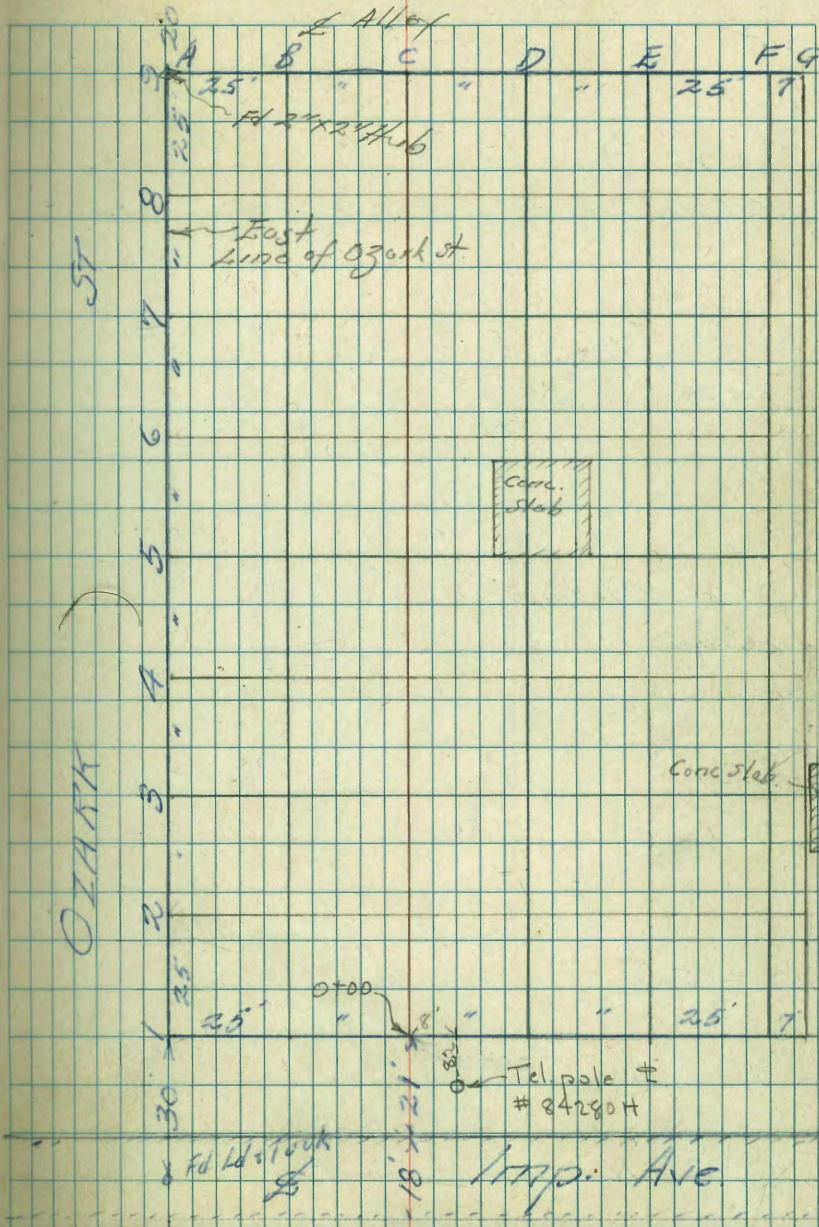 ℄ Alley
20
A B C D E F G
9 25' " " " 25' 7'
Fd 2"x2" Hub
25'
8
East
Line of Ozark st.
"
ST
7
"
6
Conc.
Slab
"
5
"
4
"
Conc Slab
3
OZARK
2
25'
0+00
1 25' " 8' " " 25' 7'
8.2
Tel. pole ℄
# 84280H
30
21'
Fd Ld & Tack
℄
18'
Imp. Ave.